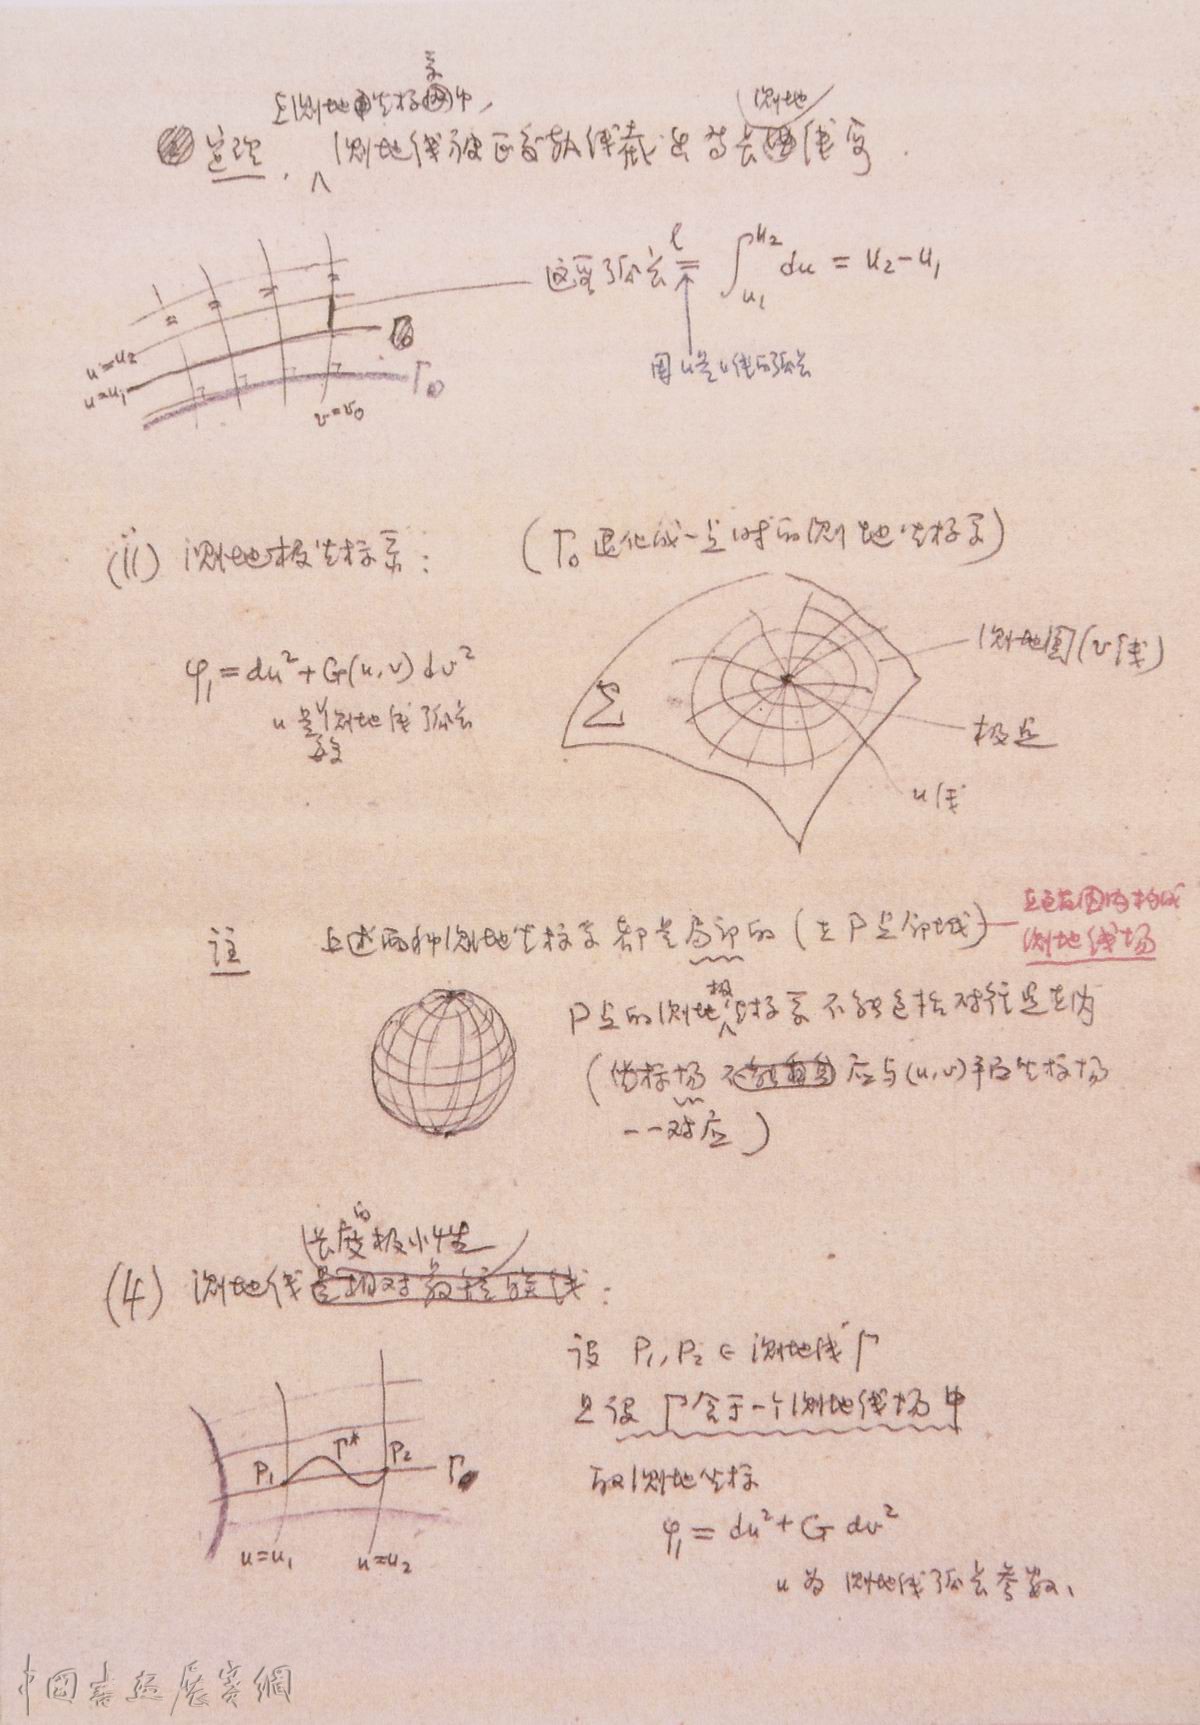 系
在测地坐标网中,
测地
定理. ∧ 测地线被正交轨线截出等长线段.
这里弧长 l = ∫_{u₁}^{u₂} du = u₂-u₁
因u是u线的弧长
u=u₂
u=u₁
Γ₀
v=v₀
(ii) 测地极坐标系: (Γ₀退化成一点时的测地坐标系)
φ₁=du²+G(u,v)dv²
u是测地线弧长
参数
Σ
测地圆(v线)
极点
u线
注 上述两种测地坐标系都是局部的(在P点邻域)
在包含围内构成
测地线场
极
P点的测地∧坐标系不能包括对径点在内
(坐标场 应与(u,v)平面坐标场
一一对应)
长度的极小性
(4) 测地线是相对最短的线:
P₁ Γ* P₂ Γ
u=u₁ u=u₂
设 P₁,P₂ ∈ 测地线Γ
且设 Γ含于一个测地线场中
取测地坐标
φ₁= du²+G dv²
u为测地线弧长参数、
中国书画展赛網